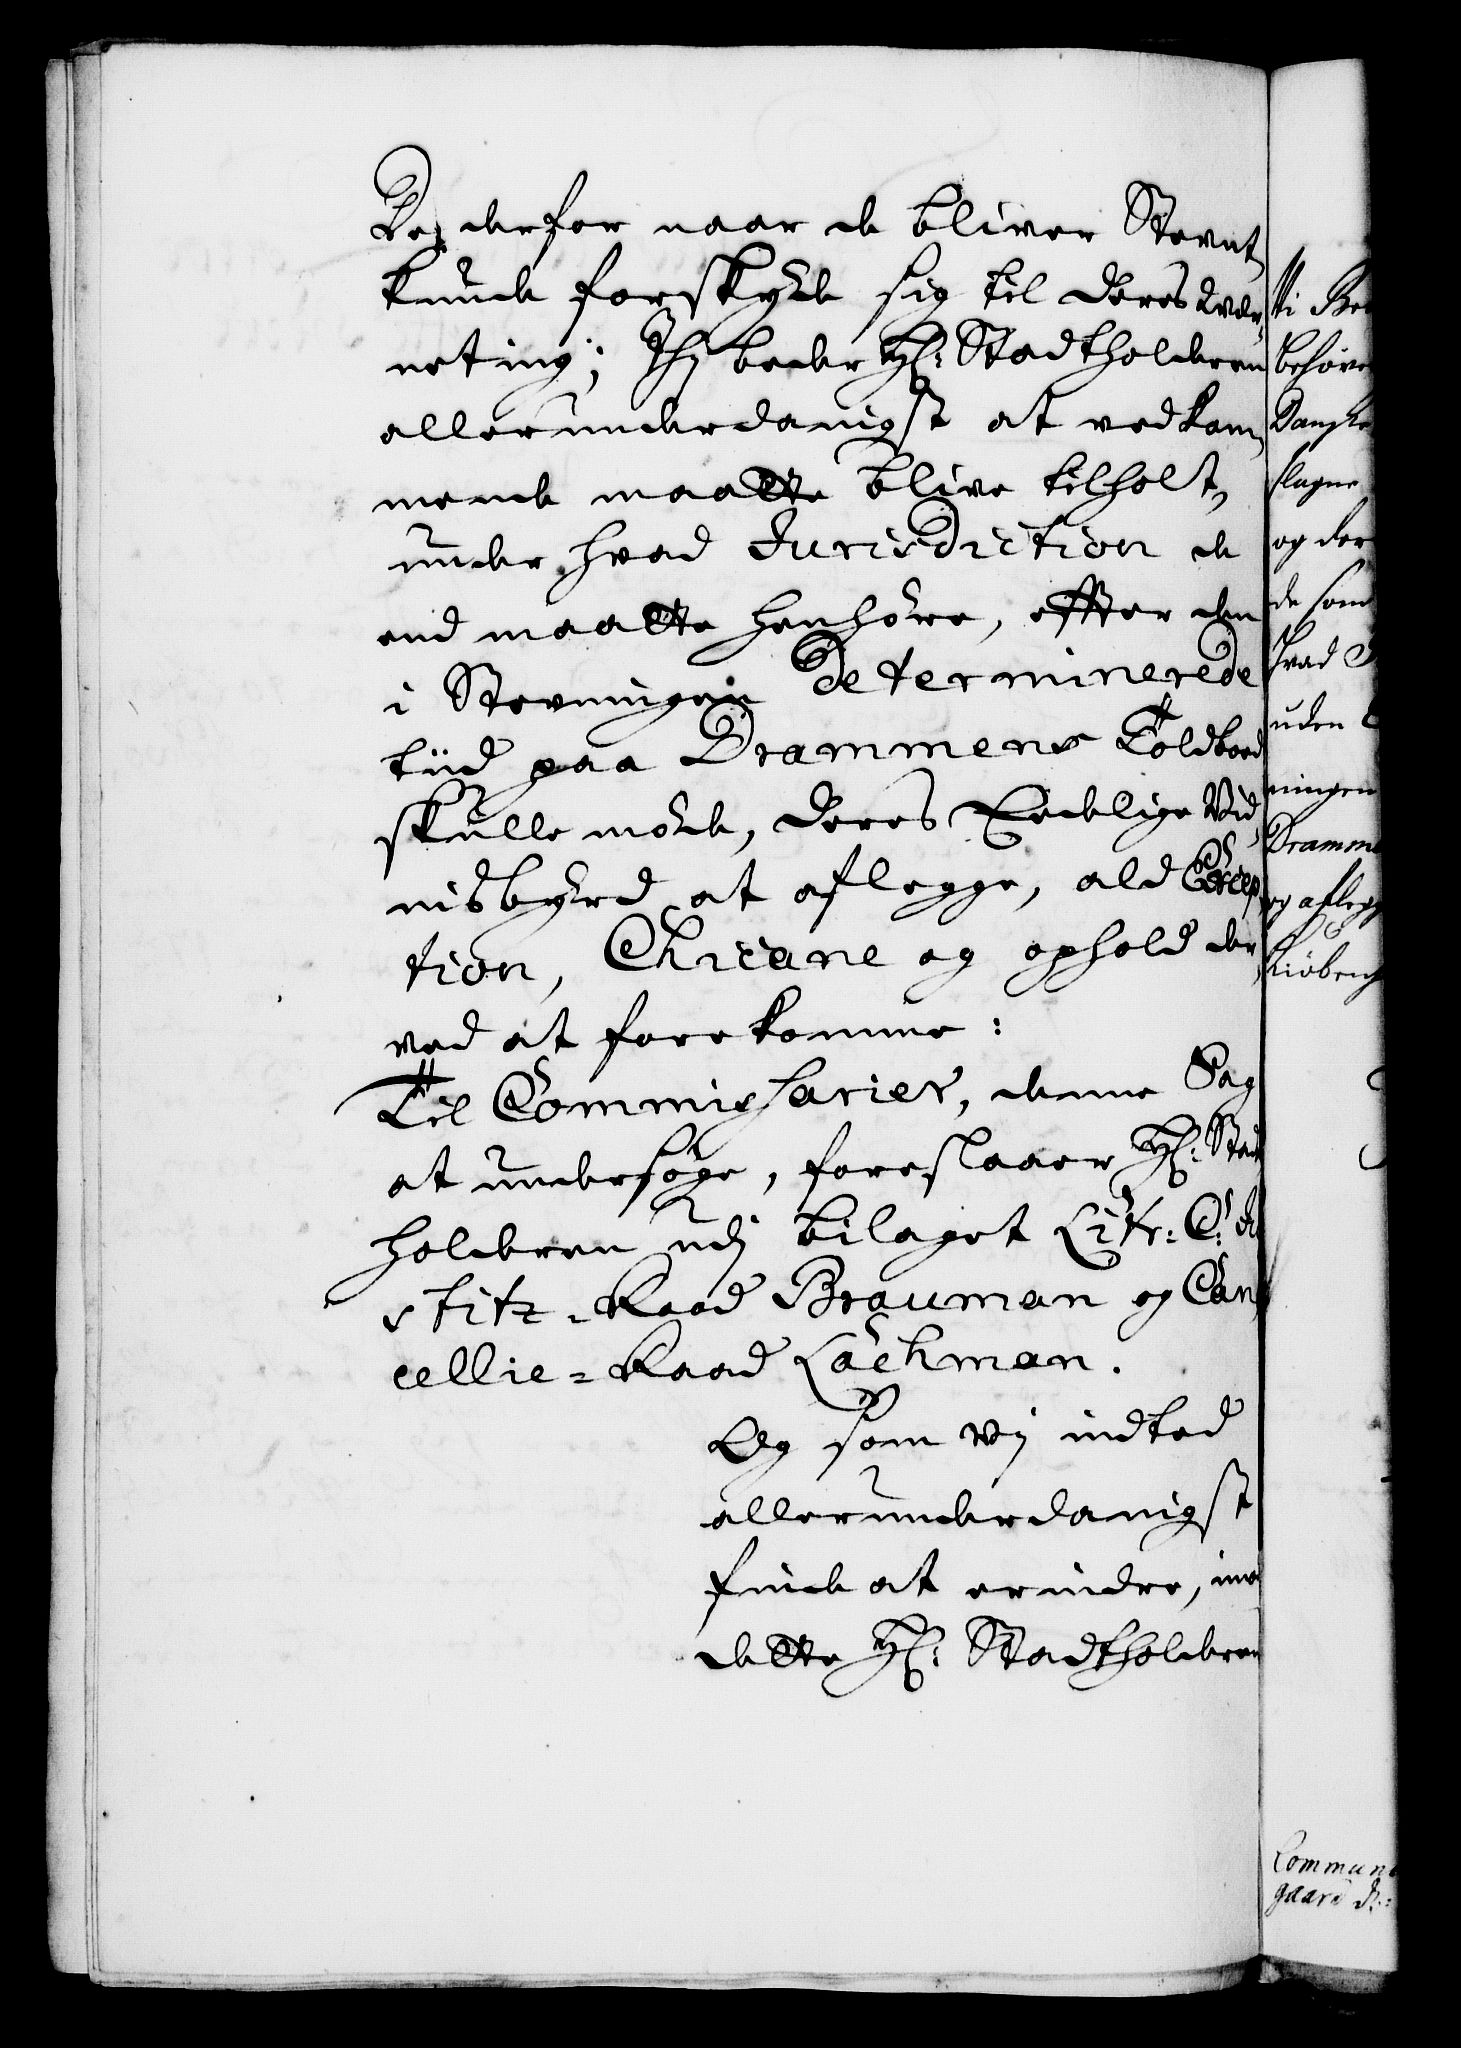 De derfor naar de bliver Stevnt,
kunde forskyde sig til deres Vær-
neting; Thj beder Hr: Stadtholderen
allerunderdanigst at vedkom-
mende maatte blive tilholt,
under hvad Jurisdiction de
end maatte henhöre, effter den
i Stevningen determinerede
tiid paa Drammens Toldboed
skulle möde, deres Eedelige Vid-
nisbyrd at aflegge, ald Excep-
tion, Chicane og ophold der
ved at forekomme:
Til Commissarier, denne Sag
at undersöge, foreslaaer Hr: Stad
holderen udj bilaget Litr: C: Ju
stitz-Raad Brauman og Can
cellie-Raad Lachman.
Og som vij indted
allerunderdanigst
finde at erindre, imod
dette Hr: Stadtholderen
tti Be
behöve
Danske
slagne
og der
de som
hvad J
uden
ningen
Dramme
og aflegg
Kiöbenh
Commun
gaard d: